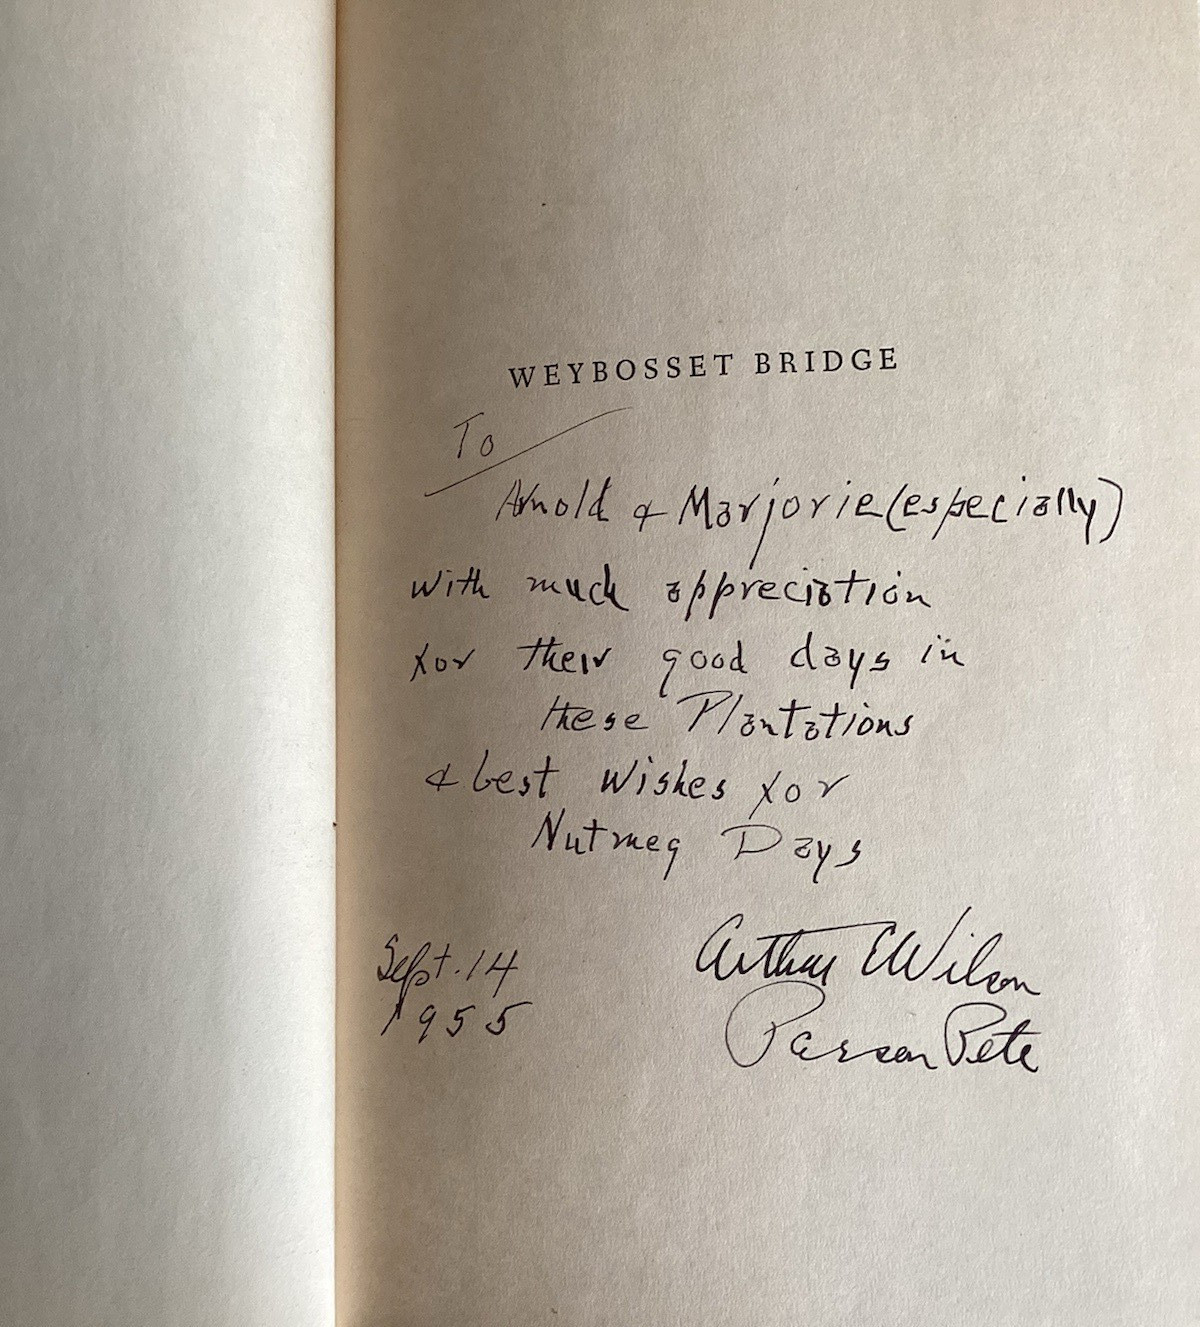 WEYBOSSET BRIDGE
To
Arnold & Marjorie (especially)
with much appreciation
for their good days in
these Plantations
& best wishes for
Nutmeg Days
Sept. 14
1955
Arthur E Wilson
Parson Pete